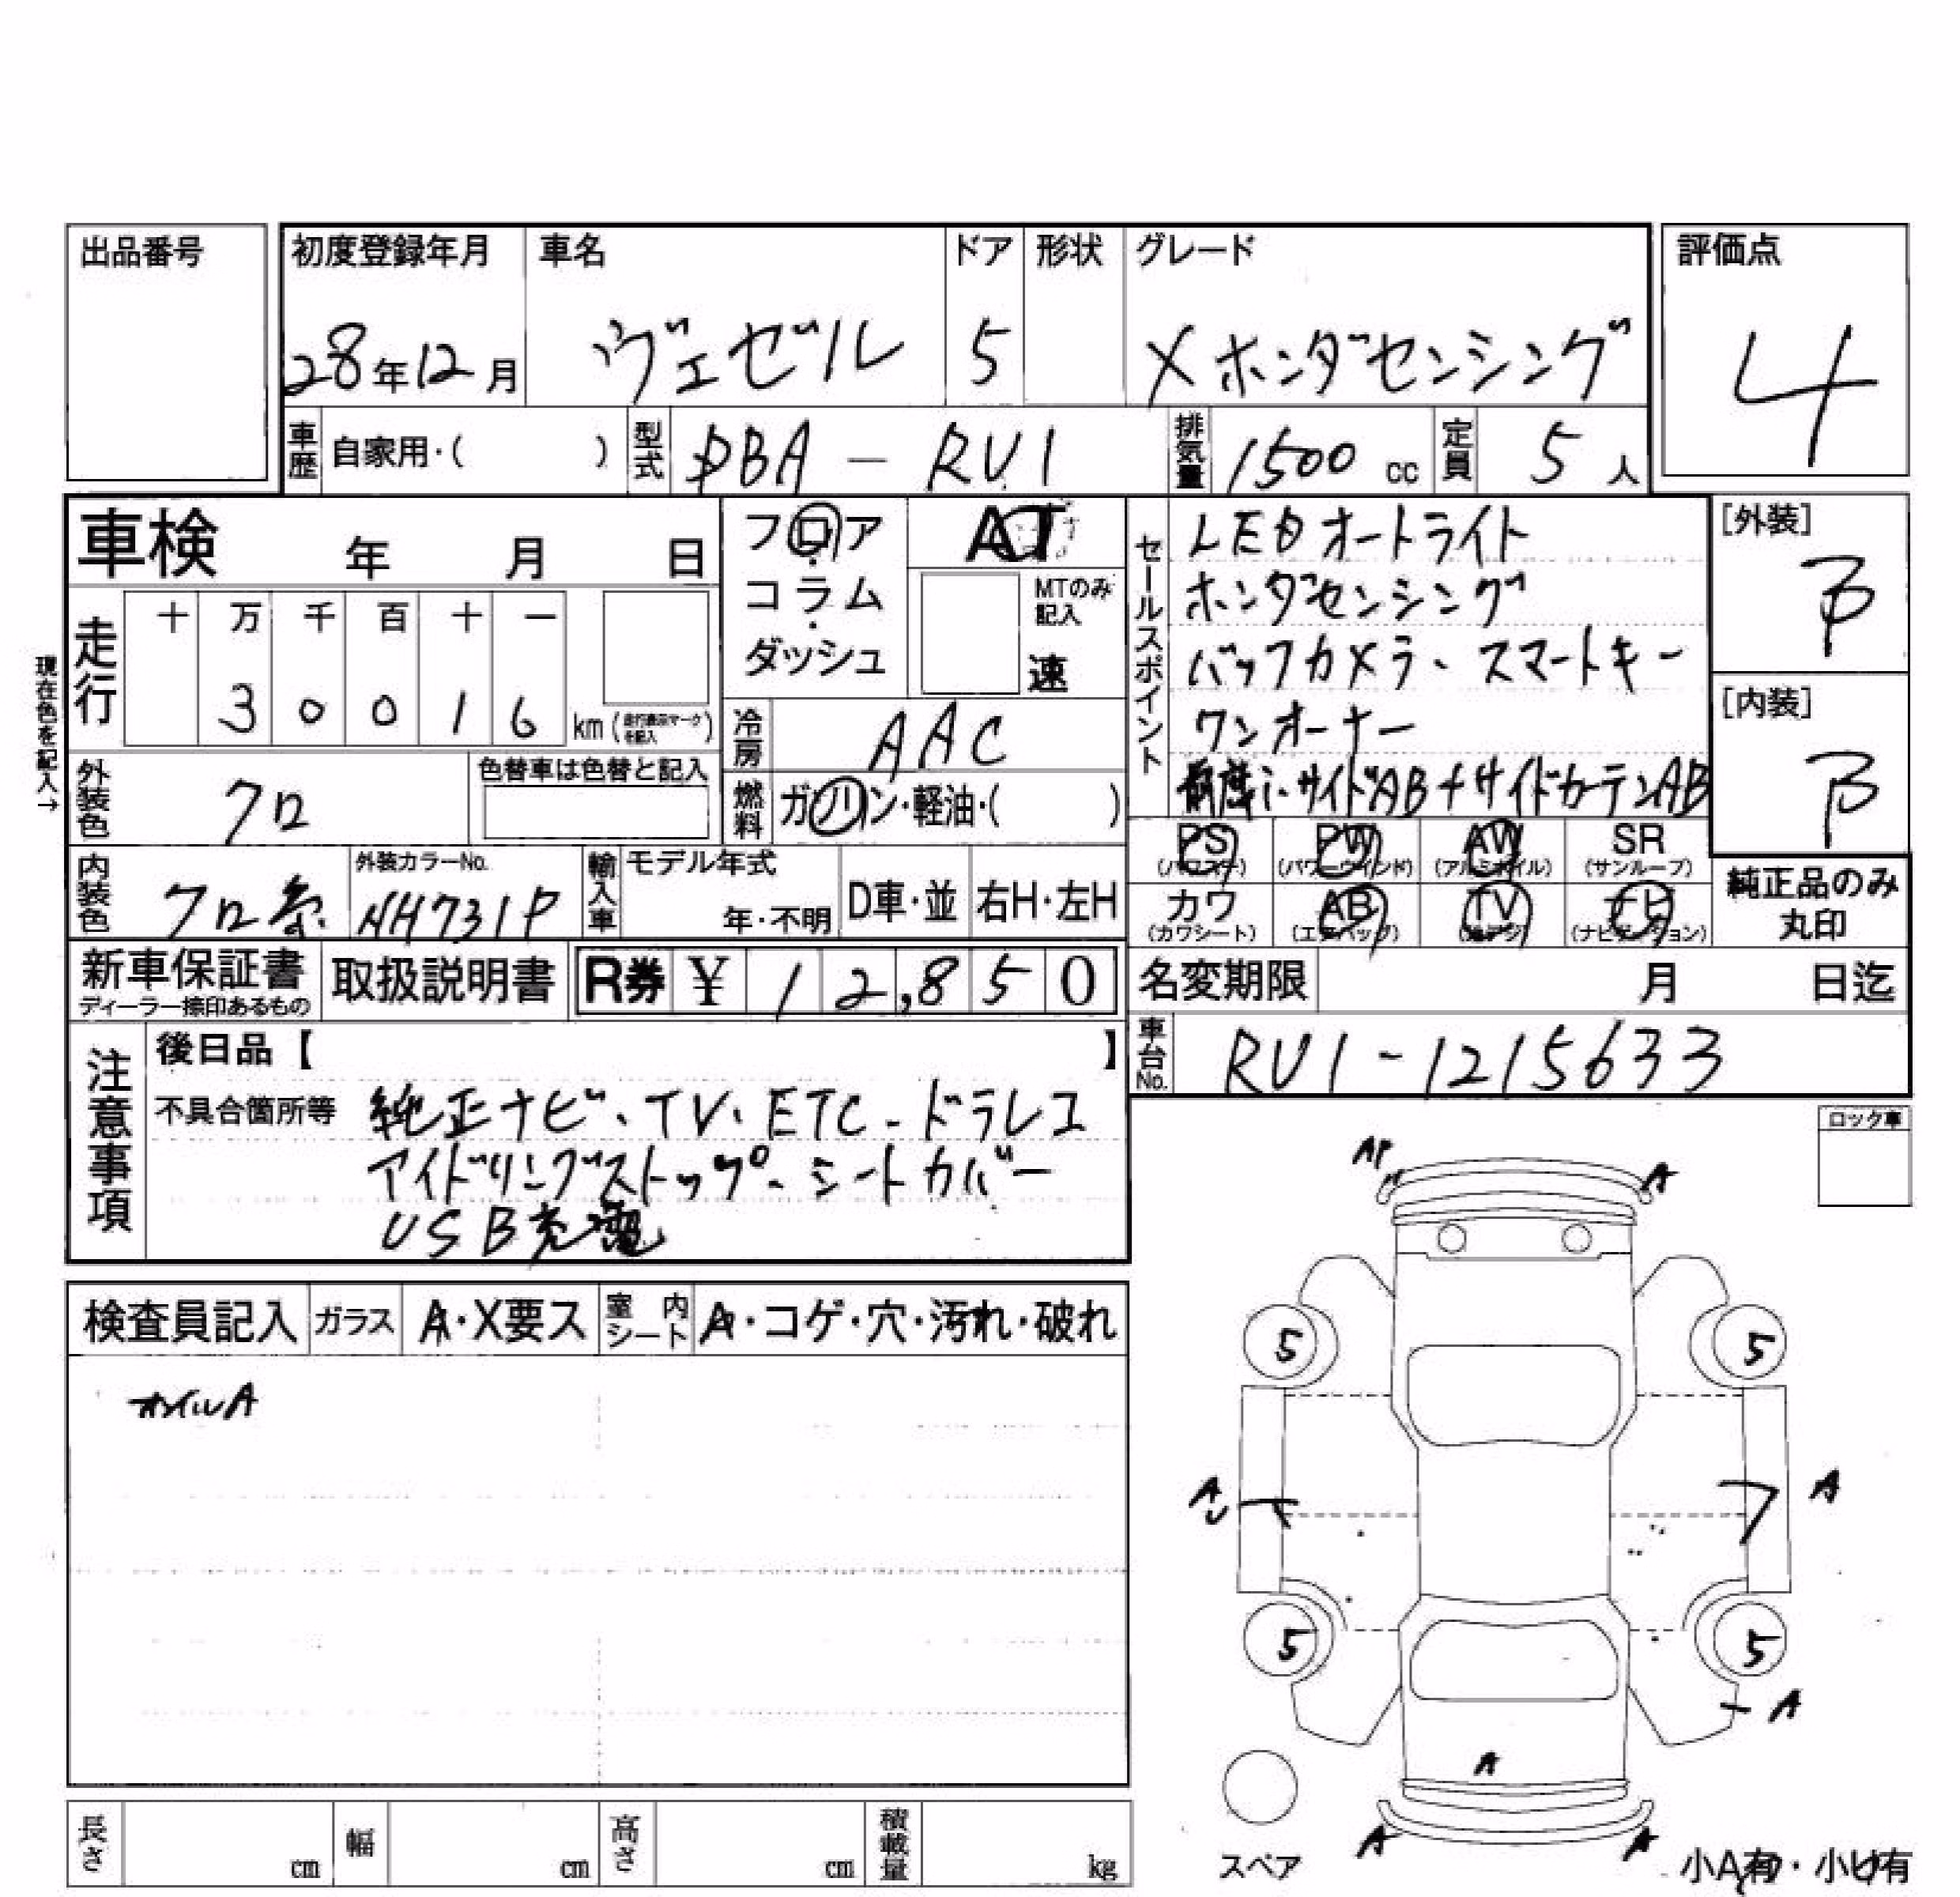 出品番号
初度登録年月 車名 ドア 形状 グレード 評価点
28年12月 ヴェゼル 5 Xホンダセンシング 4
車歴 自家用・( ) 型式 DBA - RU1 排気量 1500 cc 定員 5 人
車検 年 月 日
フロア
コラム
ダッシュ
AT
MTのみ記入
速
走行 十 万 千 百 十 一
3 0 0 1 6 km (走行表示マークを記入)
現在色を記入→
冷房 AAC
燃料 ガソリン・軽油・( )
外装色 クロ 色替車は色替と記入
内装色 クロ系 外装カラーNo. NH731P 輸入車 モデル年式 年・不明 D車・並 右H・左H
セールスポイント
LEDオートライト
ホンダセンシング
バックカメラ、スマートキー
ワンオーナー
サイドAB+サイドカーテンAB
[外装]
B
[内装]
B
PS (パワステ) PW (パワーウインド) AW (アルミホイル) SR (サンルーフ)
カワ (カワシート) AB (エアバック) TV (地デジ) ナビ (ナビゲーション)
純正品のみ
丸印
新車保証書 ディーラー捺印あるもの 取扱説明書 R券 ¥ 12,850
名変期限 月 日迄
車台No. RU1-1215633
注意事項
後日品【 】
不具合箇所等 純正ナビ、TV、ETC、ドラレコ
アイドリングストップ、シートカバー
USB充電
ロック車
検査員記入 ガラス A・X要ス 室内シート A・コゲ・穴・汚れ・破れ
AP A
5 5
A A
5 5
A
A
A A
スペア
小A有・小U有
長さ cm 幅 cm 高さ cm 積載量 kg